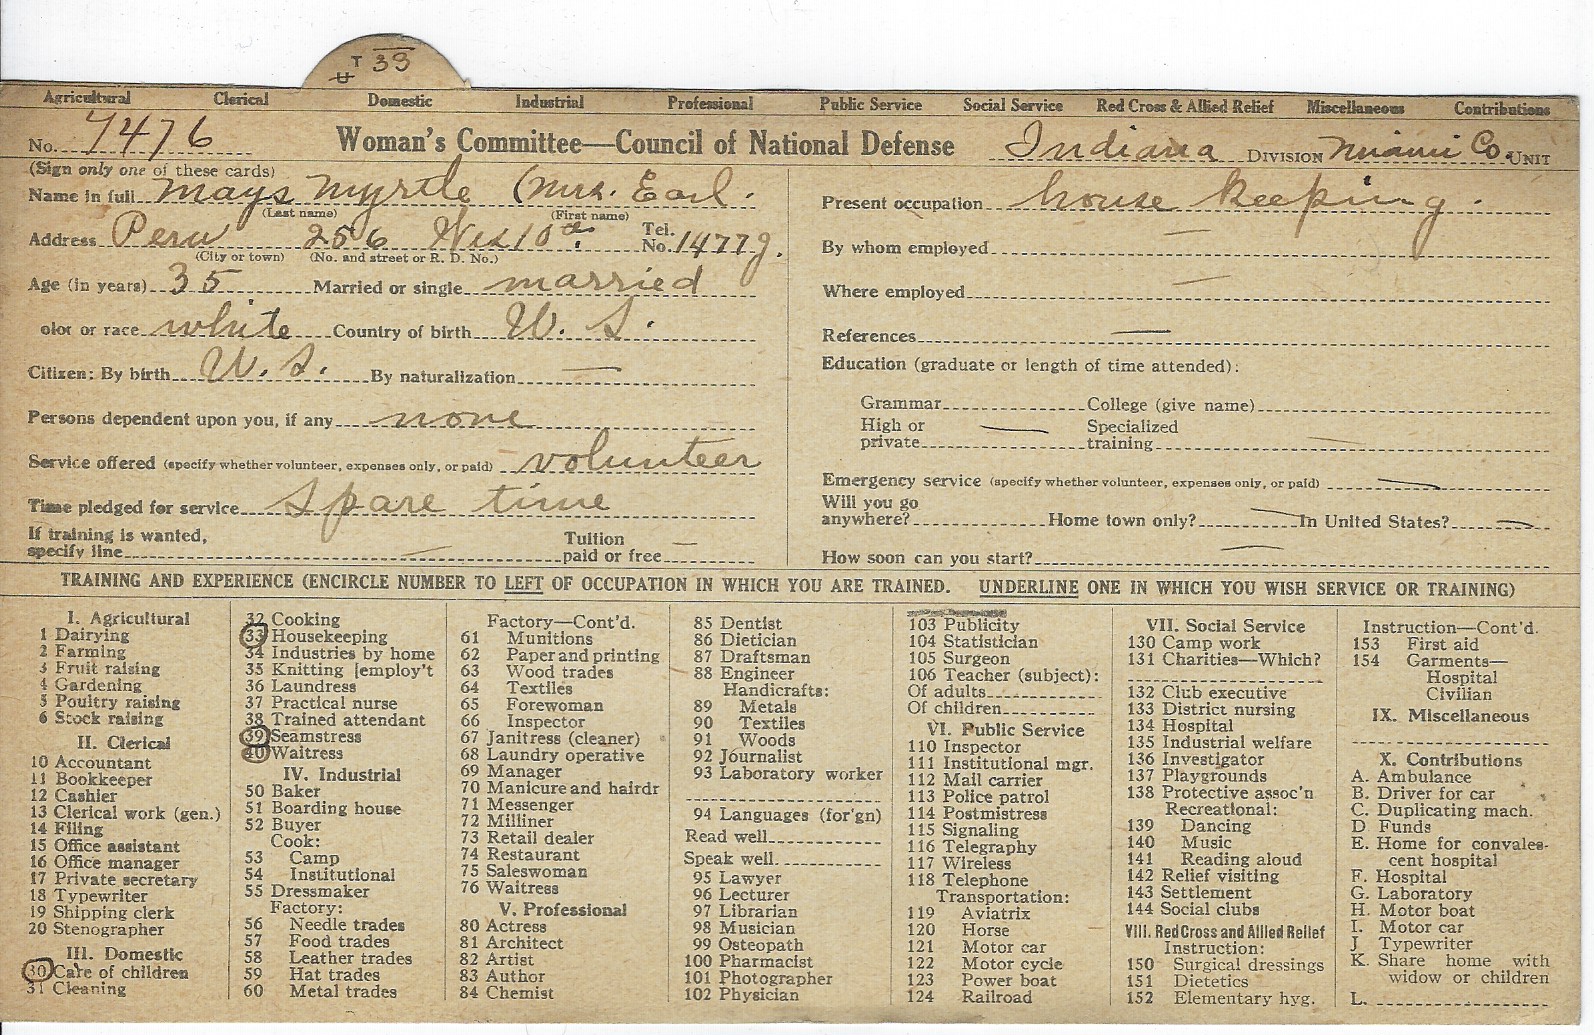 T 33
U
Agricultural Clerical Domestic Industrial Professional Public Service Social Service Red Cross & Allied Relief Miscellaneous Contributions
No. 7476 Woman's Committee—Council of National Defense Indiana DIVISION Miami Co. UNIT
(Sign only one of these cards)
Name in full Mays Myrtle (Mrs. Earl.
(Last name) (First name)
Address Peru 256 Wes 10th. Tel. No. 1477 J.
(City or town) (No. and street or R. D. No.)
Age (in years) 35 Married or single married
olor or race white Country of birth U. S.
Citizen: By birth U. S. By naturalization —
Persons dependent upon you, if any none
Service offered (specify whether volunteer, expenses only, or paid) volunteer
Time pledged for service spare time
If training is wanted,
specify line — Tuition paid or free —
Present occupation house keeping.
By whom employed —
Where employed —
References —
Education (graduate or length of time attended):
Grammar College (give name)
High or private — Specialized training —
Emergency service (specify whether volunteer, expenses only, or paid) —
Will you go
anywhere? Home town only? — In United States? —
How soon can you start? —
TRAINING AND EXPERIENCE (ENCIRCLE NUMBER TO LEFT OF OCCUPATION IN WHICH YOU ARE TRAINED. UNDERLINE ONE IN WHICH YOU WISH SERVICE OR TRAINING)
I. Agricultural
1 Dairying
2 Farming
3 Fruit raising
4 Gardening
5 Poultry raising
6 Stock raising
II. Clerical
10 Accountant
11 Bookkeeper
12 Cashier
13 Clerical work (gen.)
14 Filing
15 Office assistant
16 Office manager
17 Private secretary
18 Typewriter
19 Shipping clerk
20 Stenographer
III. Domestic
30 Care of children
31 Cleaning
32 Cooking
33 Housekeeping
34 Industries by home
35 Knitting [employ't
36 Laundress
37 Practical nurse
38 Trained attendant
39 Seamstress
40 Waitress
IV. Industrial
50 Baker
51 Boarding house
52 Buyer
Cook:
53 Camp
54 Institutional
55 Dressmaker
Factory:
56 Needle trades
57 Food trades
58 Leather trades
59 Hat trades
60 Metal trades
Factory—Cont'd.
61 Munitions
62 Paper and printing
63 Wood trades
64 Textiles
65 Forewoman
66 Inspector
67 Janitress (cleaner)
68 Laundry operative
69 Manager
70 Manicure and hairdr
71 Messenger
72 Milliner
73 Retail dealer
74 Restaurant
75 Saleswoman
76 Waitress
V. Professional
80 Actress
81 Architect
82 Artist
83 Author
84 Chemist
85 Dentist
86 Dietician
87 Draftsman
88 Engineer
Handicrafts:
89 Metals
90 Textiles
91 Woods
92 Journalist
93 Laboratory worker
94 Languages (for'gn)
Read well
Speak well
95 Lawyer
96 Lecturer
97 Librarian
98 Musician
99 Osteopath
100 Pharmacist
101 Photographer
102 Physician
103 Publicity
104 Statistician
105 Surgeon
106 Teacher (subject):
Of adults
Of children
VI. Public Service
110 Inspector
111 Institutional mgr.
112 Mail carrier
113 Police patrol
114 Postmistress
115 Signaling
116 Telegraphy
117 Wireless
118 Telephone
Transportation:
119 Aviatrix
120 Horse
121 Motor car
122 Motor cycle
123 Power boat
124 Railroad
VII. Social Service
130 Camp work
131 Charities—Which?
132 Club executive
133 District nursing
134 Hospital
135 Industrial welfare
136 Investigator
137 Playgrounds
138 Protective assoc'n
Recreational:
139 Dancing
140 Music
141 Reading aloud
142 Relief visiting
143 Settlement
144 Social clubs
VIII. Red Cross and Allied Relief
Instruction:
150 Surgical dressings
151 Dietetics
152 Elementary hyg.
Instruction—Cont'd.
153 First aid
154 Garments—
Hospital
Civilian
IX. Miscellaneous
X. Contributions
A. Ambulance
B. Driver for car
C. Duplicating mach.
D Funds
E. Home for convales-
cent hospital
F. Hospital
G. Laboratory
H. Motor boat
I. Motor car
J. Typewriter
K. Share home with
widow or children
L.